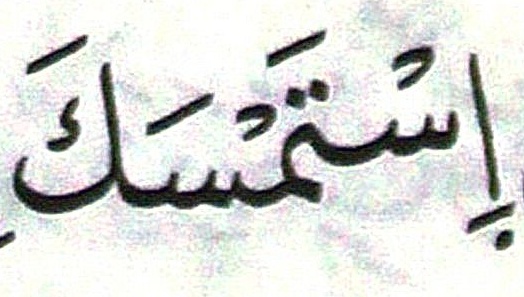 إِسْتَمْسَكَ